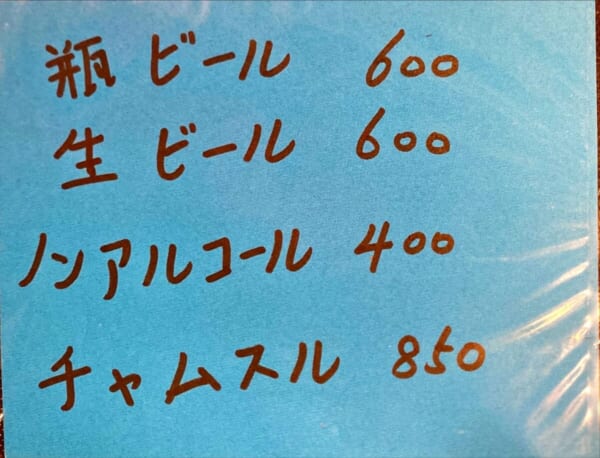 瓶ビール 600
生ビール 600
ノンアルコール 400
チャムスル 850